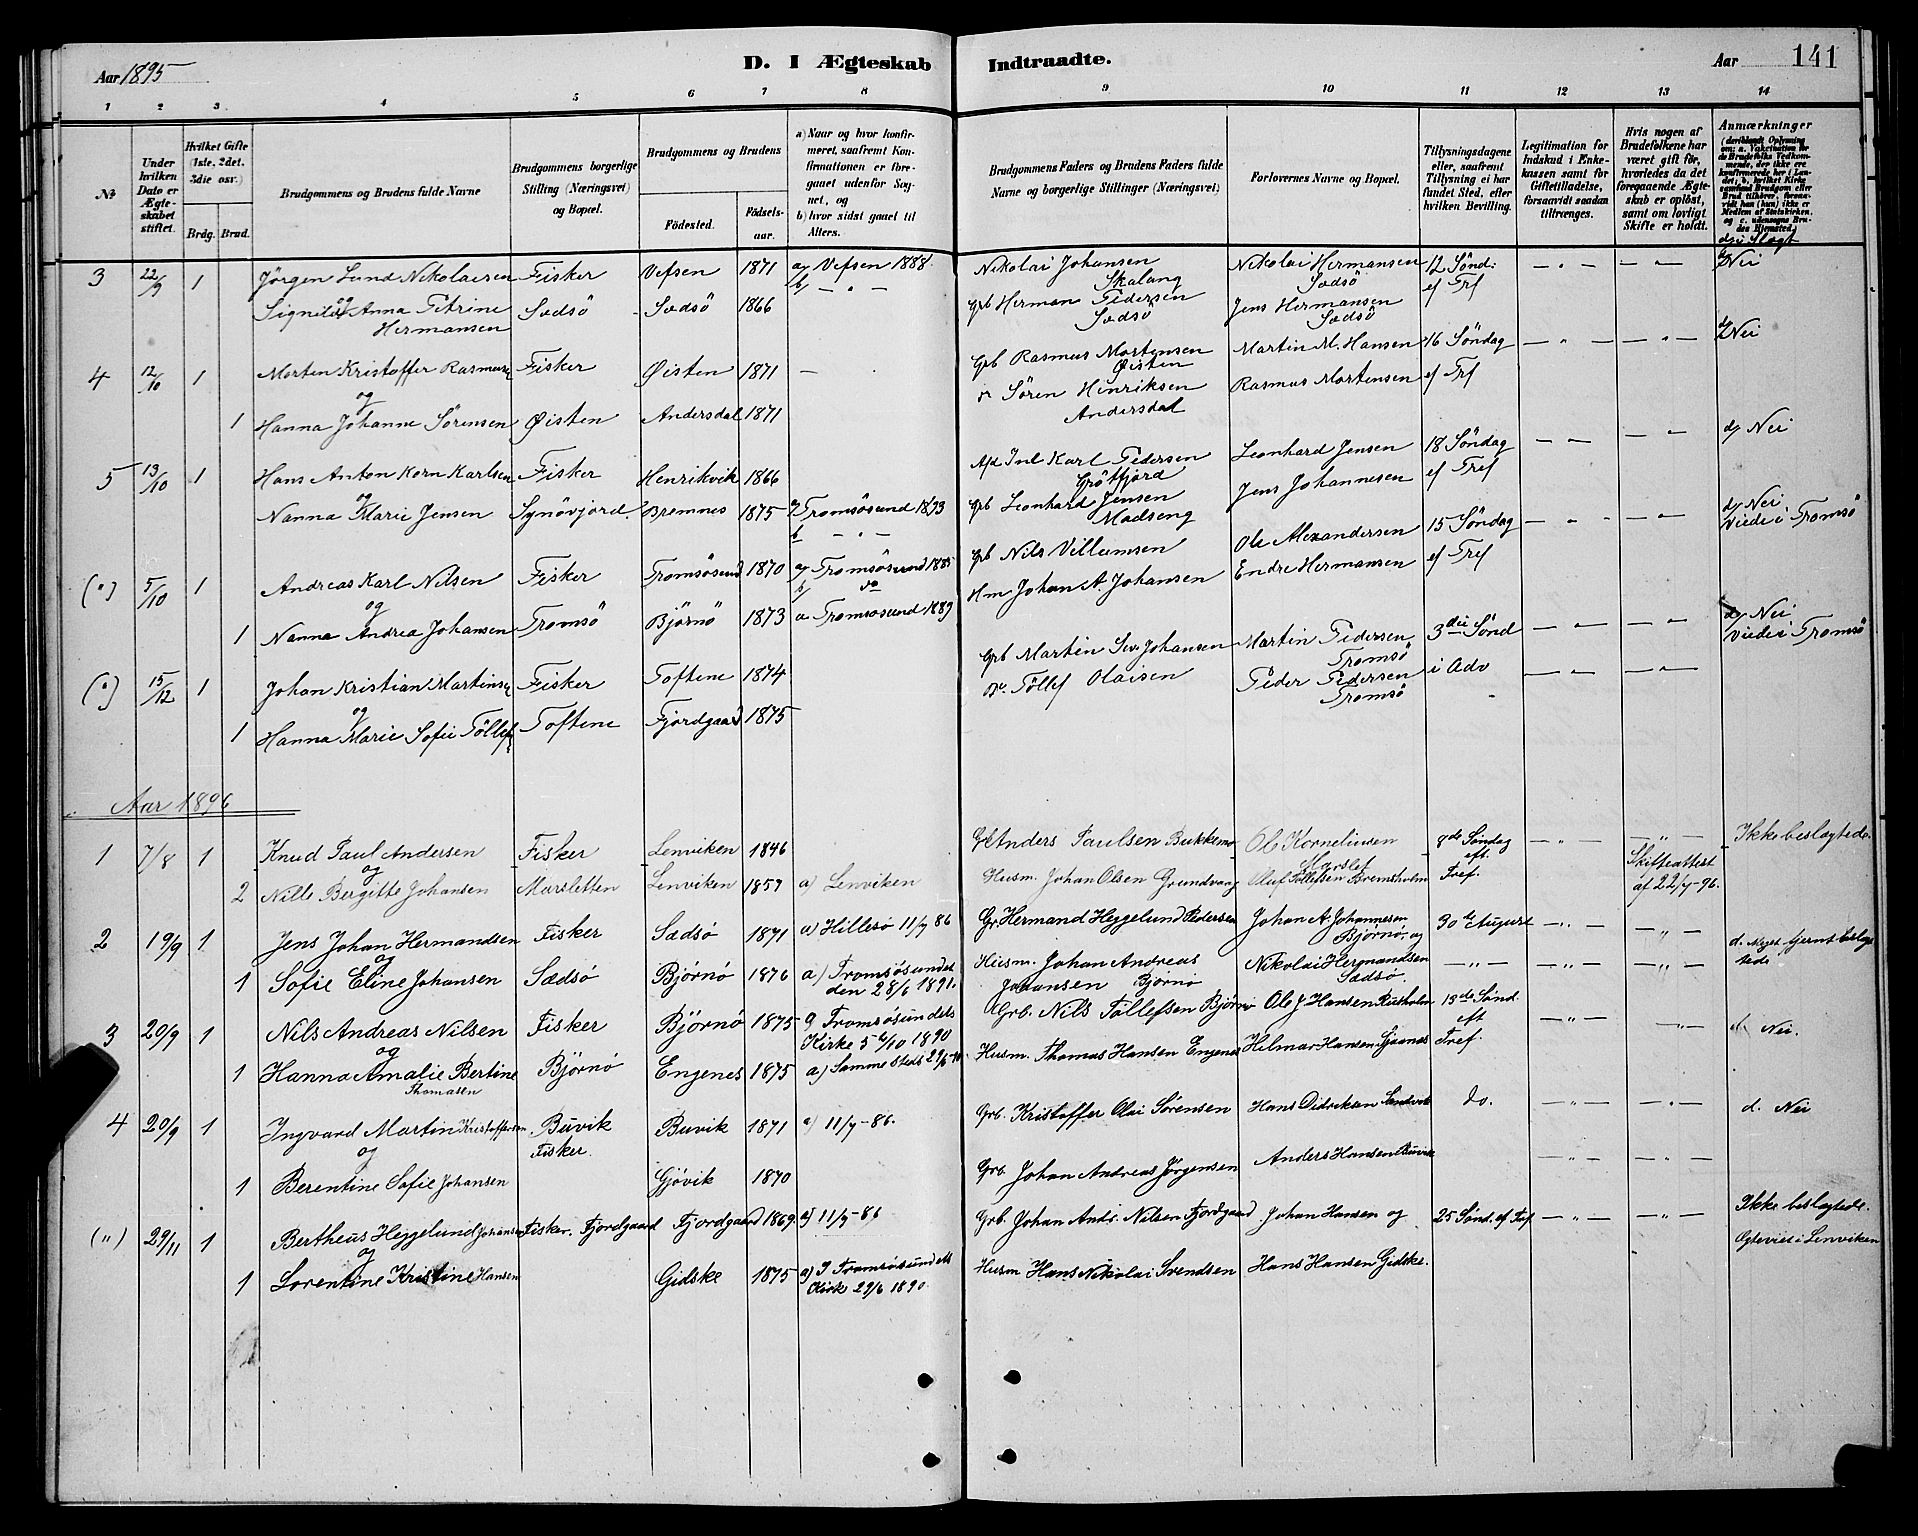 Aar 1895
D. I Ægteskab Indtraadte.
Aar 141
1 2 3 4 5 6 7 8 9 10 11 12 13 14
No
Under hvilken Dato er Ægteskabet stiftet.
Hvilket Gifte (1ste, 2det, 3die osv.)
Brdg. Brud.
Brudgommens og Brudens fulde Navne
Brudgommens borgerlige Stilling (Næringsvei) og Bopæl.
Brudgommens og Brudens
Fødested.
Fødselsaar.
a) Naar og hvor konfirmeret, saafremt Konfirmationen er foregaaet udenfor Sognet, og
b) hvor sidst gaaet til Alters.
Brudgommens Faders og Brudens Faders fulde Navne og borgerlige Stillinger (Næringsvei)
Forlovernes Navne og Bopæl.
Tillysningsdagene eller, saafremt Tillysning ei har fundet Sted, efter hvilken Bevilling.
Legitimation for Indskud i Enkekassen samt for Giftetilladelse, forsaavidt saadan tiltrænges.
Hvis nogen af Brudefolkene har været gift før, hvorledes da det foregaaende Ægteskab er opløst, samt om lovligt Skifte er holdt.
Anmærkninger
d) i Slægt
3 22/9 1 Jörgen Lund Nikolaisen Fisker Vefsen 1871 a) Vefsen 1888. Nikolai Johansen Skalang Nikolai Hermansen Sædsö 12 Sönd: — " — — " — d) Nei
og b) — " —
Signild Anna Petrine Hermansen Sædsö Sædsö 1866 Grb Herman Pedersen Sædsö Jens Hermansen Sædsö ef Trf
4 12/10 1 Morten Kristoffer Rasmus Fisker Øisten 1871 — Grb Rasmus Mortensen Øisten Martin M. Hansen 16 Söndag — " — — " — d) Nei
og
1 Hanna Johanne Sörensen Øisten Andersdal 1871 Sören Henriksen Andersdal Rasmus Mortensen ef Trf
5 13/10 1 Hans Anton Korn Karlsen Fisker Henrikvik 1866 Afd Inl Karl Pedersen Grötfjord Leonhard Jensen 18 Söndag — " — — " — d) Nei
og
Nanna Marie Jensen Synövjord. Bremnes 1875 a) Tromsösund 1893 Grb Leonhard Jensen Madseng Jens Johannesen ef Tref
b — " —
(") 5/10 1 Andreas Karl Nilsen Fisker Tromsösund 1870 a) Tromsösund 1885 Grb Nils Villumsen Ole Alexandersen 15 Söndag — " — — " — d) Nei Viede i Tromsö
og b) do
1 Nanna Andrea Johansen Tromsö Björnö 1873 a Tromsösund 1889 Hm Johan A. Johansen Endre Hermansen ef Tref
(") 15/12 1 Johan Kristian Martins Fisker Toftene 1874 Grb Martin Sev. Johansen Martin Pedersen Tromsö 3die Sönd — " — — " — d) Nei Viede i Tromsö
og
1 Hanna Marie Sofie Töllef Toftene Fjordgaard 1875 Do. Töllef Olaisen Peder Pedersen Tromsö i Adv — " — — " —
Aar 1896
1 7/8 1 Knud Paul Andersen Fisker Lenviken 1846 Grb Anders Paulsen Bukkemo Ole Kornelinsen Marslet 9de Söndag eft. — " — — " — Ikke beslægtede.
og
2 Nille Bergitte Johansen Marsletten Lenviken 1859 a) Lenviken Husm. Johan Olsen Grundvang Oluf Töllefsen Bremsholm Tref. Skifteattest af 22/7-96.
2 19/9 1 Jens Johan Hermandsen Fisker Sædsö 1871 a) Hillesö 11/7 86 Gr. Hermand Heggelund Pedersen Johan A. Johannesen Bjørnø, og 30te August — " — — " — d. Meget fjernt beslægtede
og
1 Sofie Eline Johansen Sædsö Bjørnø 1876 a) Tromsøsundet den 28/6 1891. Husm. Johan Andreas Johansen Bjørnø Nikolai Hermandsen Sædsø. — " — — " — — " —
3 20/9 1 Nils Andreas Nilsen Fisker Bjørnø 1875 a) Tromsøsundets Kirke 5 10 1890 Grb. Nils Töllefsen Bjørnø Ole J Hansen Rustholm 13de Sönd. eft — " — — " — d. Nei.
og
1 Hanna Amalie Bertine Thomasen Bjørnø Engenes 1875 a) Samme Sted 29/6-90 Husm. Thomas Hansen Engenes Hilmar Hansen Tref.
4 20/9 1 Ingvard Martin Kristoffersen Buvik Fisker. Buvik 1871 a) 11/7-86. Grb. Kristoffer Olai Sørensen Hans Didreksen Sandvik do. — " — — " — d. Nei
og
1 Berentine Sofie Johansen Gjøvik 1870 Grb. Johan Andreas Jørgensen Anders Hansen Buvik — " — — " —
(") 29/11 1 Bertheus Heggelund Johansen Fisker. Fjordgaard Fjordgaard 1869. a) 11/7-86 Grb. Johan Andr. Nilsen Fjordgaard Johan Hansen og 25 Sönd. ef Tref. — " — — " — Ikke beslægtede.
og
1 Lorentine Kristine Hansen Gidske 1875 a) I Tromsøsundets Kirk 29/6 1890. Husm Hans Nikolai Svendsen Hans Hansen Gidske. Egteviet i Lenviken